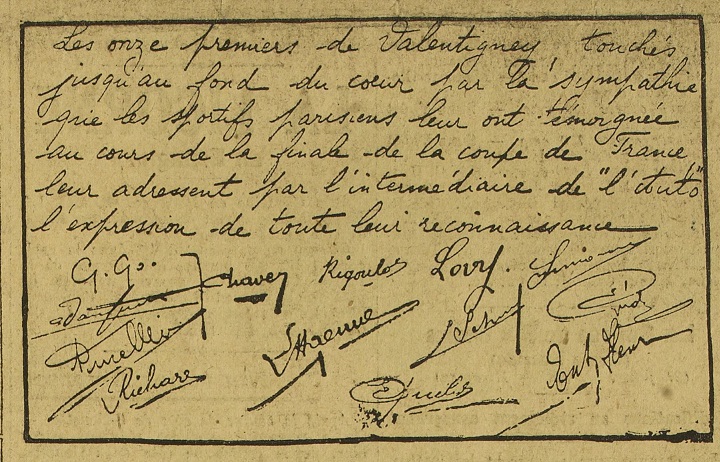 Les onze premiers de Valentigney touchés
jusqu'au fond du cœur par la sympathie
que les sportifs parisiens leur ont témoignée
au cours de la finale de la coupe de France,
leur adressent par l'intermédiaire de "l'Auto"
l'expression de toute leur reconnaissance
Chavey Rigoulos Lovy.
Richard